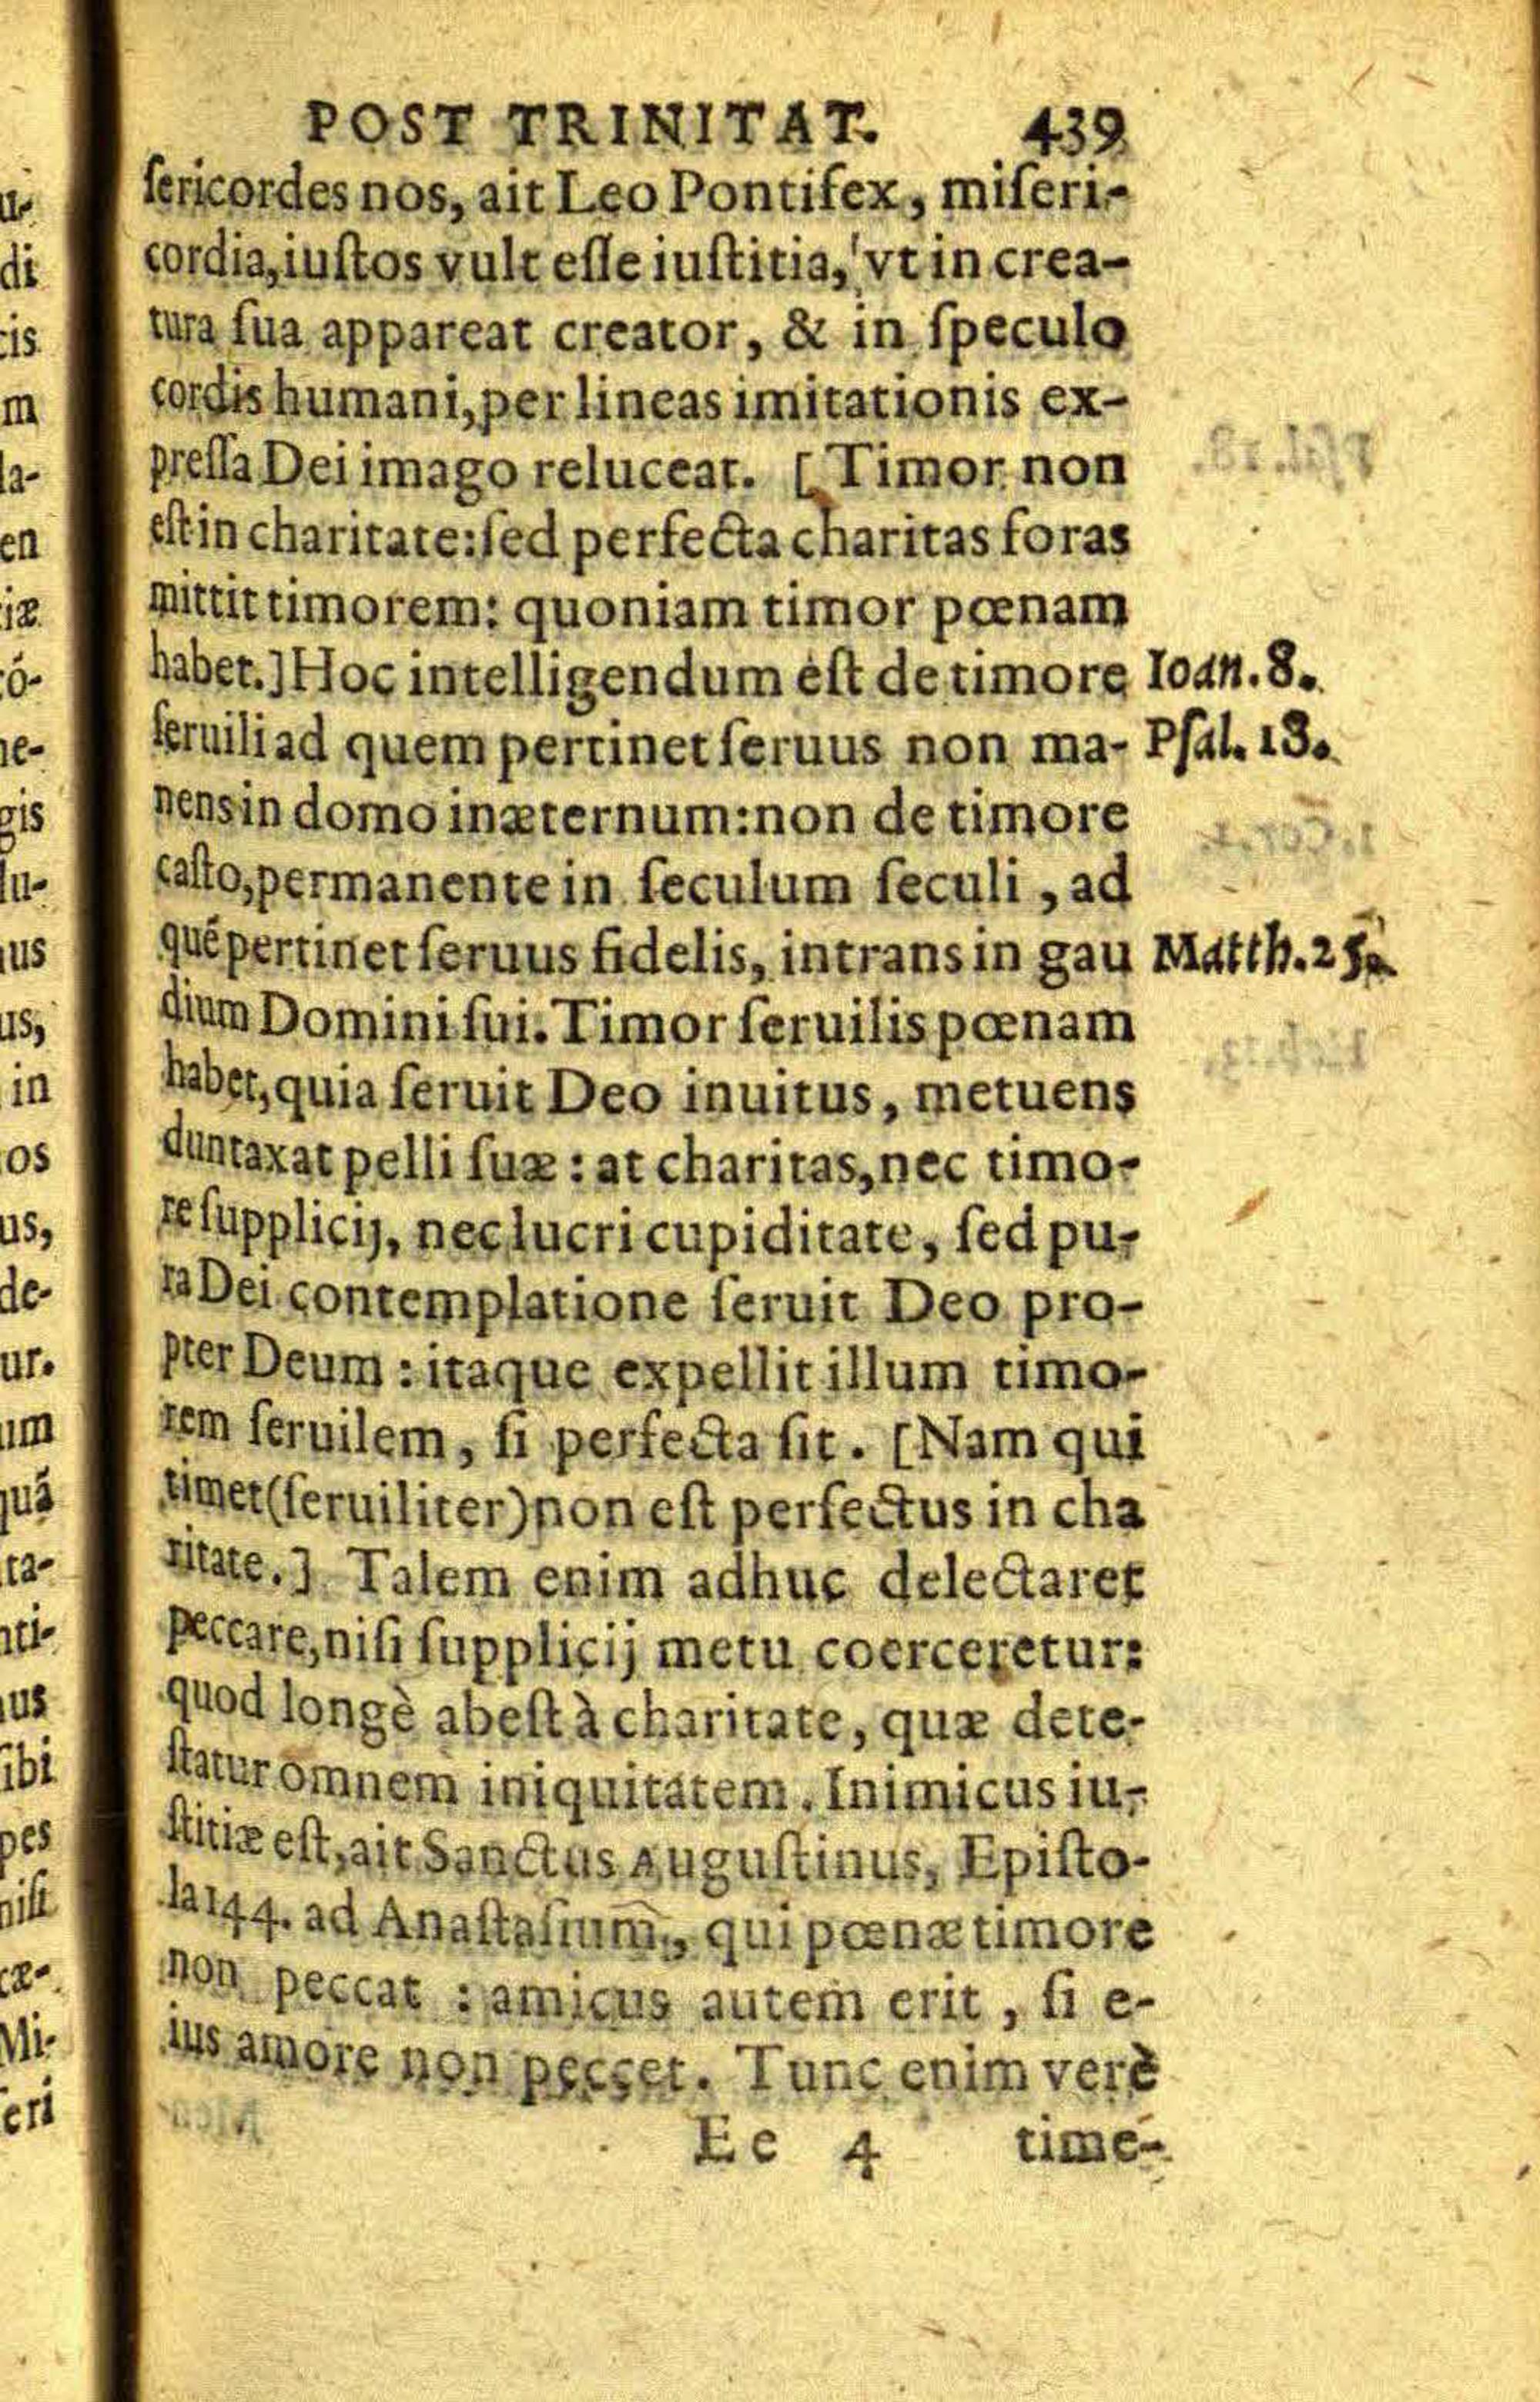 POST TRINITAT. 439
ſericordes nos, ait Leo Pontifex, miſeri-
cordia, iuſtos vult eſſe iuſtitia, vt in crea-
tura ſua appareat creator, & in ſpeculo
cordis humani, per lineas imitationis ex-
preſſa Dei imago reluceat. [Timor non
eſt in charitate: ſed perfecta charitas foras
mittit timorem: quoniam timor pœnam
habet.] Hoc intelligendum eſt de timore Ioan. 8.
ſeruili ad quem pertinet ſeruus non ma- Pſal. 18.
nens in domo in æternum: non de timore
caſto, permanente in ſeculum ſeculi, ad
qué pertinet ſeruus fidelis, intrans in gau Matth. 25.
dium Domini ſui. Timor ſeruilis pœnam
habet, quia ſeruit Deo inuitus, metuens
duntaxat pelli ſuæ: at charitas, nec timo-
re ſupplicij, nec lucri cupiditate, ſed pu-
ra Dei contemplatione ſeruit Deo pro-
pter Deum: itaque expellit illum timo-
rem ſeruilem, ſi perfecta ſit. [Nam qui
timet (ſeruiliter) non eſt perfectus in cha
ritate.] Talem enim adhuc delectaret
peccare, niſi ſupplicij metu coerceretur:
quod longè abeſt à charitate, quæ dete-
ſtatur omnem iniquitatem. Inimicus iu-
ſtitiæ eſt, ait Sanctus Auguſtinus, Epiſto-
la 144. ad Anaſtaſium, qui pœnæ timore
non peccat: amicus autem erit, ſi e-
ius amore non peccet. Tunc enim verè
Ee 4 time-